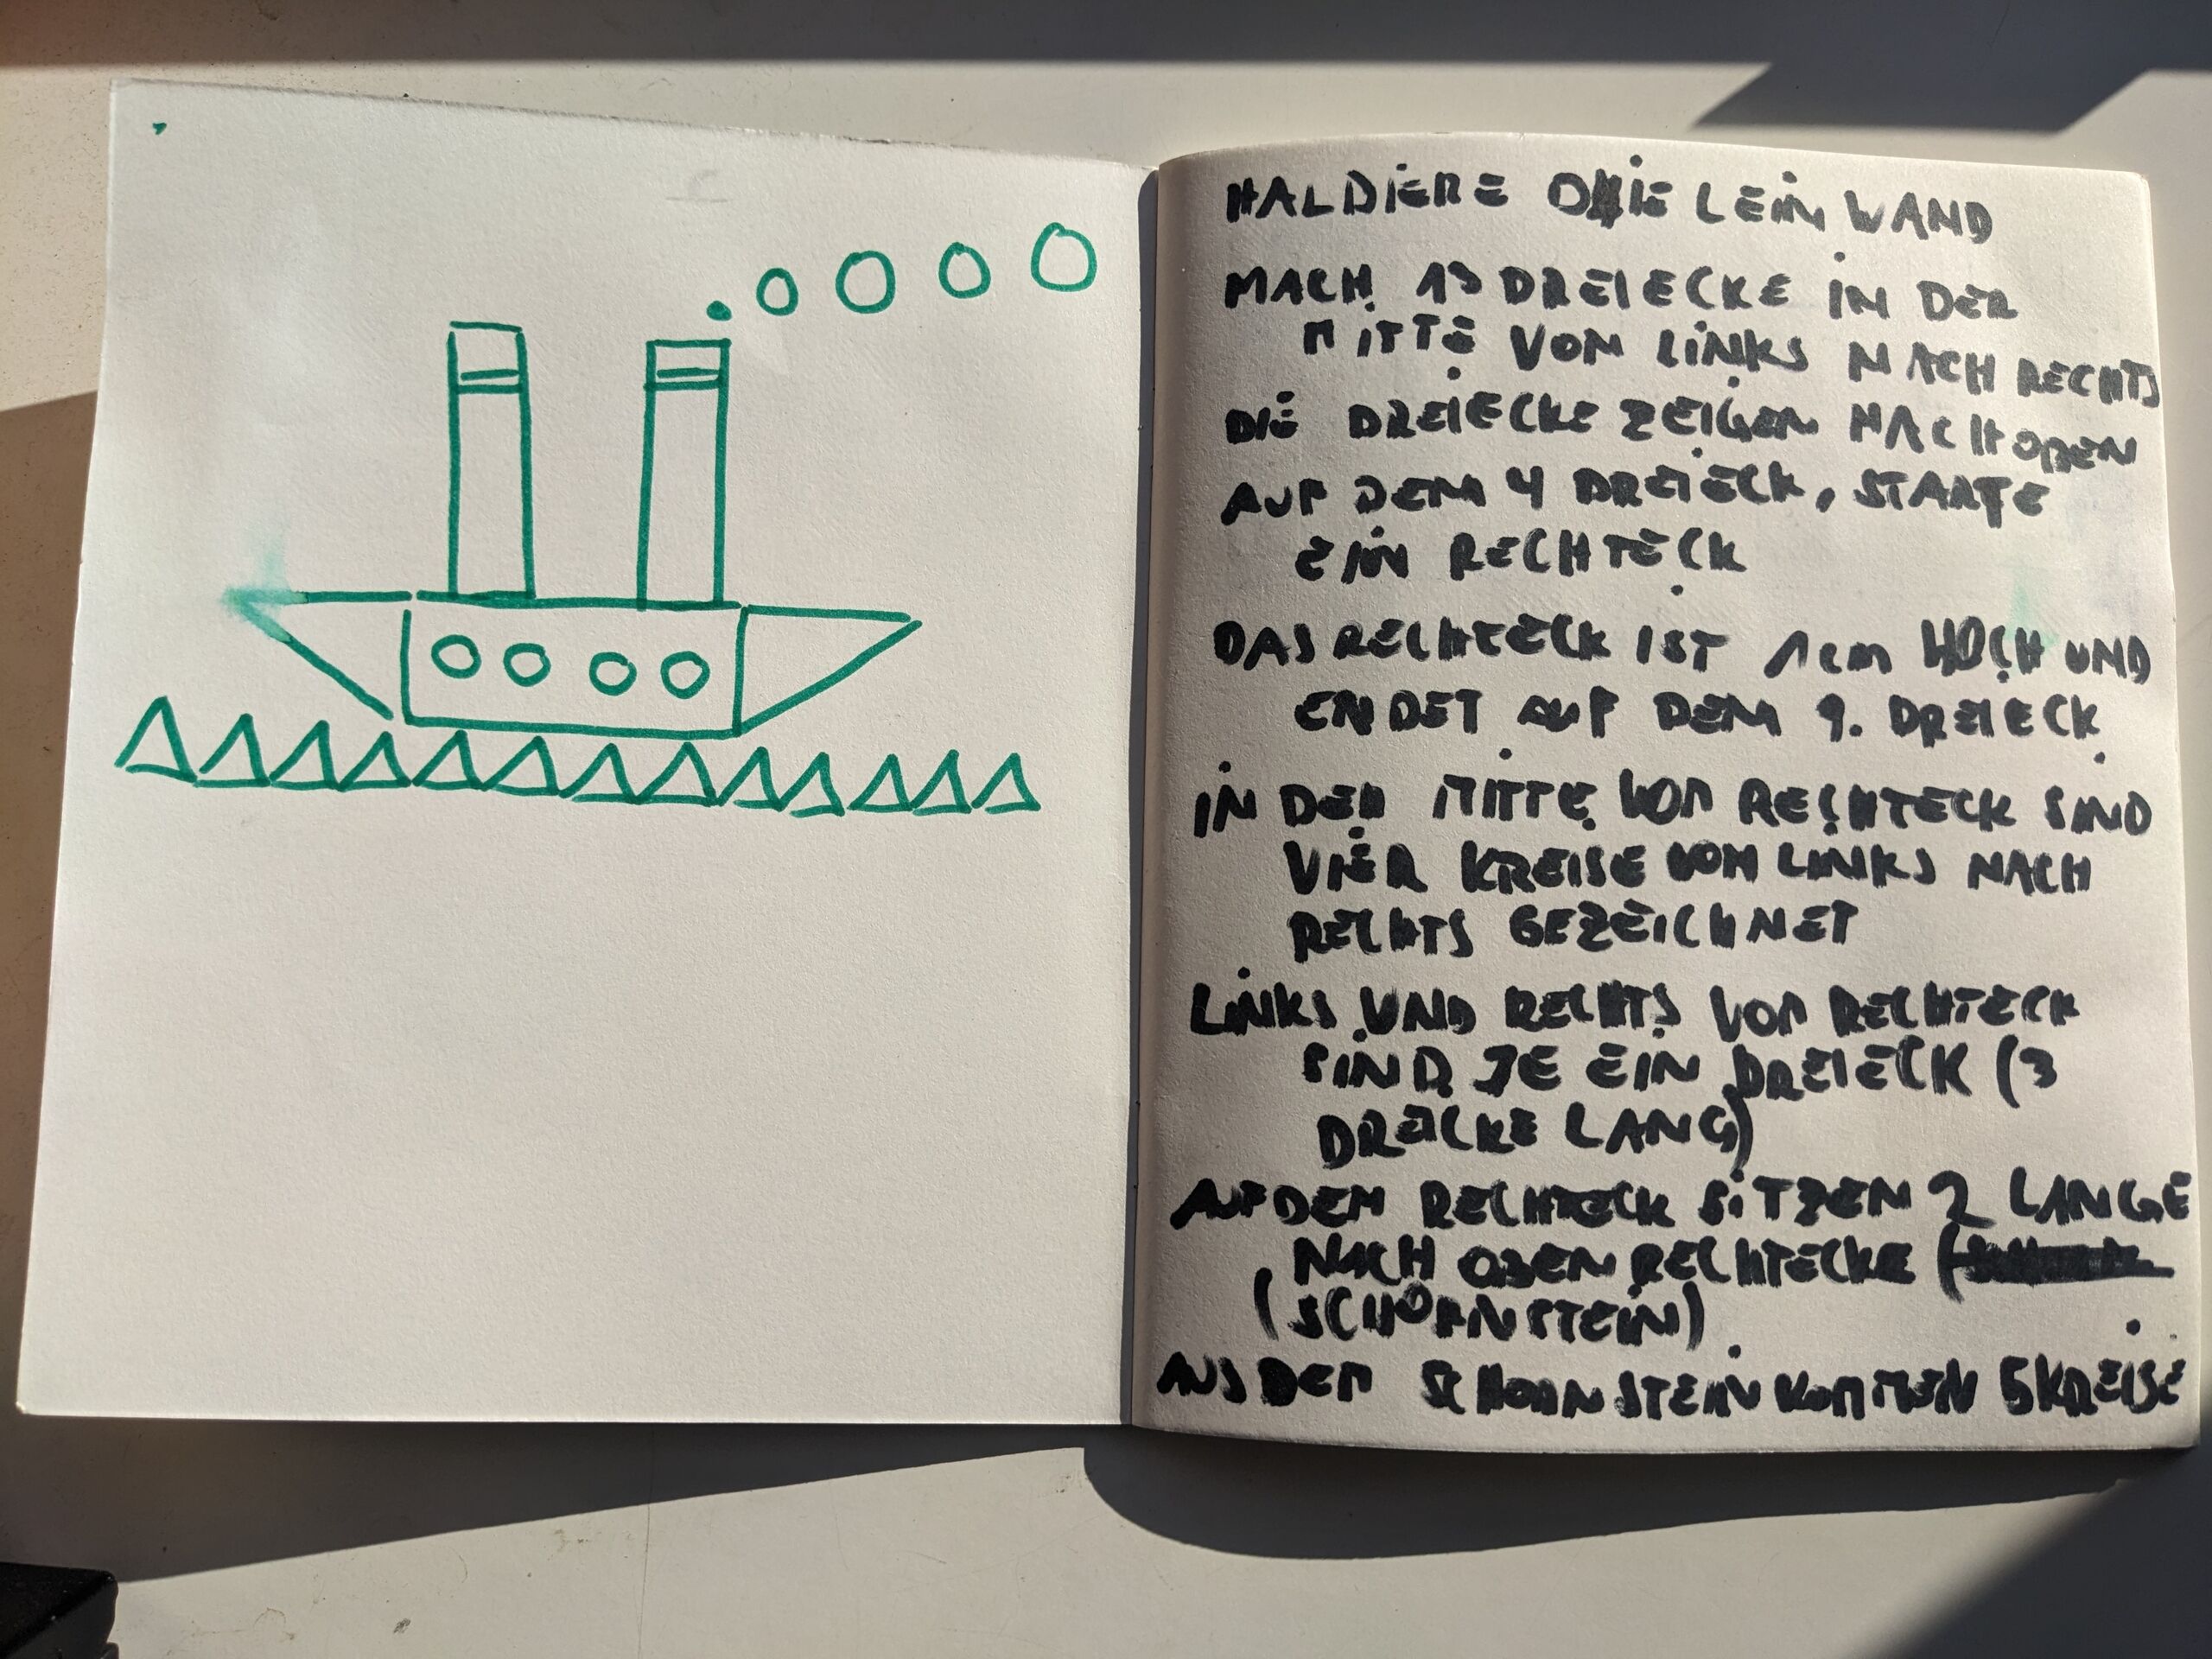 HALBIERE DIE LEINWAND
MACH 13 DREIECKE IN DER
MITTE VON LINKS NACH RECHTS
DIE DREIECKE ZEIGEN NACH OBEN
AUF DEM 4 DREIECK, STARTE
EIN RECHTECK
DAS RECHTECK IST 1cm HOCH UND
ENDET AUF DEM 9. DREIECK
IN DER MITTE VOM RECHTECK SIND
VIER KREISE VON LINKS NACH
RECHTS GEZEICHNET
LINKS UND RECHTS VOM RECHTECK
SIND JE EIN DREIECK (3
DREICKE LANG)
AUF DEM RECHTECK SITZEN 2 LANGE
NACH OBEN RECHTECKE (
(SCHORNSTEIN)
AUS DEM SCHORNSTEIN KOMMEN 5 KREISE